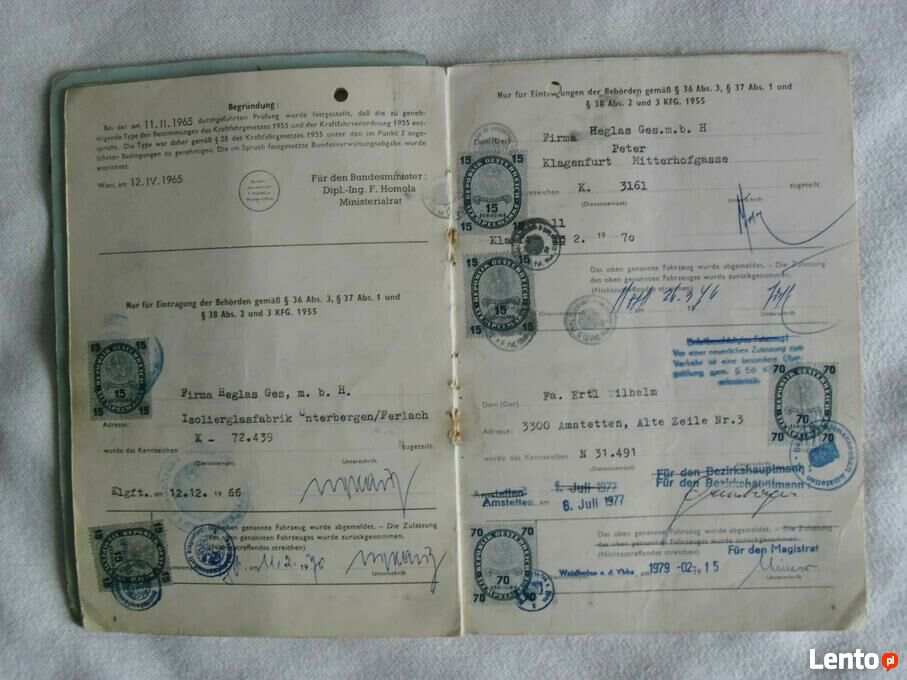 Begründung:
Bei der am 11. II. 1965 durchgeführten Prüfung wurde festgestellt, daß die zu geneh-
migende Type den Bestimmungen des Kraftfahrgesetzes 1955 und der Kraftfahrverordnung 1955 ent-
spricht. Die Type war daher gemäß § 28 des Kraftfahrgesetzes 1955 unter den im Punkt 2 ange-
führten Bedingungen zu genehmigen. Die im Spruch festgesetzte Bundesverwaltungsabgabe wurde
entrichtet.
Wien, am 12. IV. 1965
Für den Bundesminister:
Dipl.-Ing. F. Homola
Ministerialrat
Nur für Eintragung der Behörden gemäß § 36 Abs. 3, § 37 Abs. 1 und
§ 38 Abs. 2 und 3 KFG. 1955
15 15
REPUBLIK OESTERREICH
15
STEMPELMARKE
15 15
Firma Heglas Ges, m. b. H.
Isolierglasfabrik Unterbergen/Ferlach
Adresse:
K - 72.439
wurde das Kennzeichen zugeteilt.
(Dienststempel) Unterschrift
Klgft. am 12.12. 19 66
Das oben genannte Fahrzeug wurde abgemeldet. — Die Zulassung
des oben genannten Fahrzeuges wurde zurückgenommen.
(Nichtzutreffendes streichen)
am 11. 2. 19 70
Unterschrift
8
Nur für Eintragungen der Behörden gemäß § 36 Abs. 3, § 37 Abs. 1 und
§ 38 Abs. 2 und 3 KFG. 1955
Dem (Der) Firma Heglas Ges.m.b H
Peter
Klagenfurt Mitterhofgasse
K. 3161 zugeteilt.
(Dienststempel) Unterschrift
11
2. 19 70
15 15
REPUBLIK OESTERREICH
15
SCHILLING
STEMPELMARKE
15 15
Das oben genannte Fahrzeug wurde abgemeldet. — Die Zulassung
des oben genannten Fahrzeuges wurde zurückgenommen.
(Nichtzutreffendes streichen)
26.3.76
(Dienststempel) Unterschrift
Vor einer neuerlichen Zulassung zum
Verkehr ist eine besondere Über-
prüfung gem. § 56
erforderlich
70 70
REPUBLIK OESTERREICH
70
70 70
Dem (Der) Fa. Ertl Wilhelm
Adresse: 3300 Amstetten, Alte Zeile Nr.3
wurde das Kennzeichen N 31.491 zugeteilt.
(Dienststempel) Unterschrift
Für den Bezirkshauptmann
Für den Bezirkshauptmann:
Amstetten, 1. Juli 1977
Amstetten, am 6. Juli 1977
70 70
REPUBLIK OESTERREICH
70
SCHILLING
STEMPELMARKE
70
Das oben genannte Fahrzeug wurde abgemeldet. — Die Zulassung
des oben genannten Fahrzeuges wurde zurückgenommen.
(Nichtzutreffendes streichen)
Für den Magistrat
Waidhofen a. d. Ybbs, am 1979 -02- 15
Unterschrift
9
Lento.pl